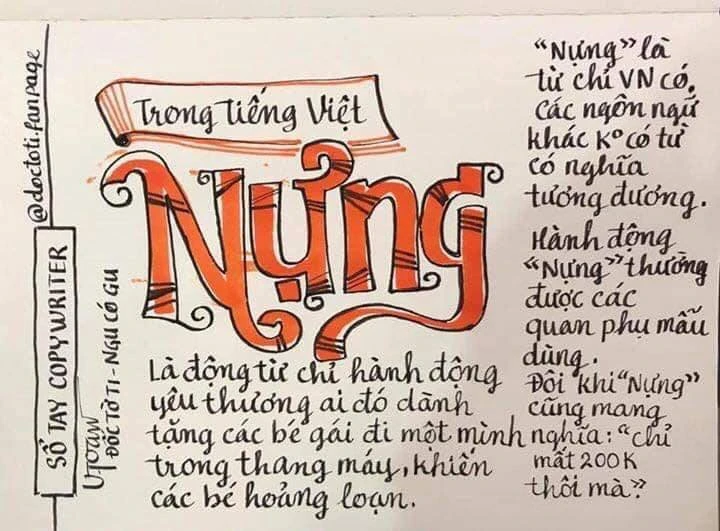 Trong Tiếng Việt
Nựng
Là động từ chỉ hành động
yêu thương ai đó dành
tặng các bé gái đi một mình
trong thang máy, khiến
các bé hoảng loạn.
"Nựng" là
từ chỉ VN có,
các ngôn ngữ
khác Kº có từ
có nghĩa
tương đương.
Hành động
"Nựng" thường
được các
quan phụ mẫu
dùng.
Đôi khi "Nựng"
cũng mang
nghĩa: "chỉ
mất 200K
thôi mà"
@doctoti.fanpage
SỔ TAY COPYWRITER
ĐỐC TỜ TI - NGU CÓ GU